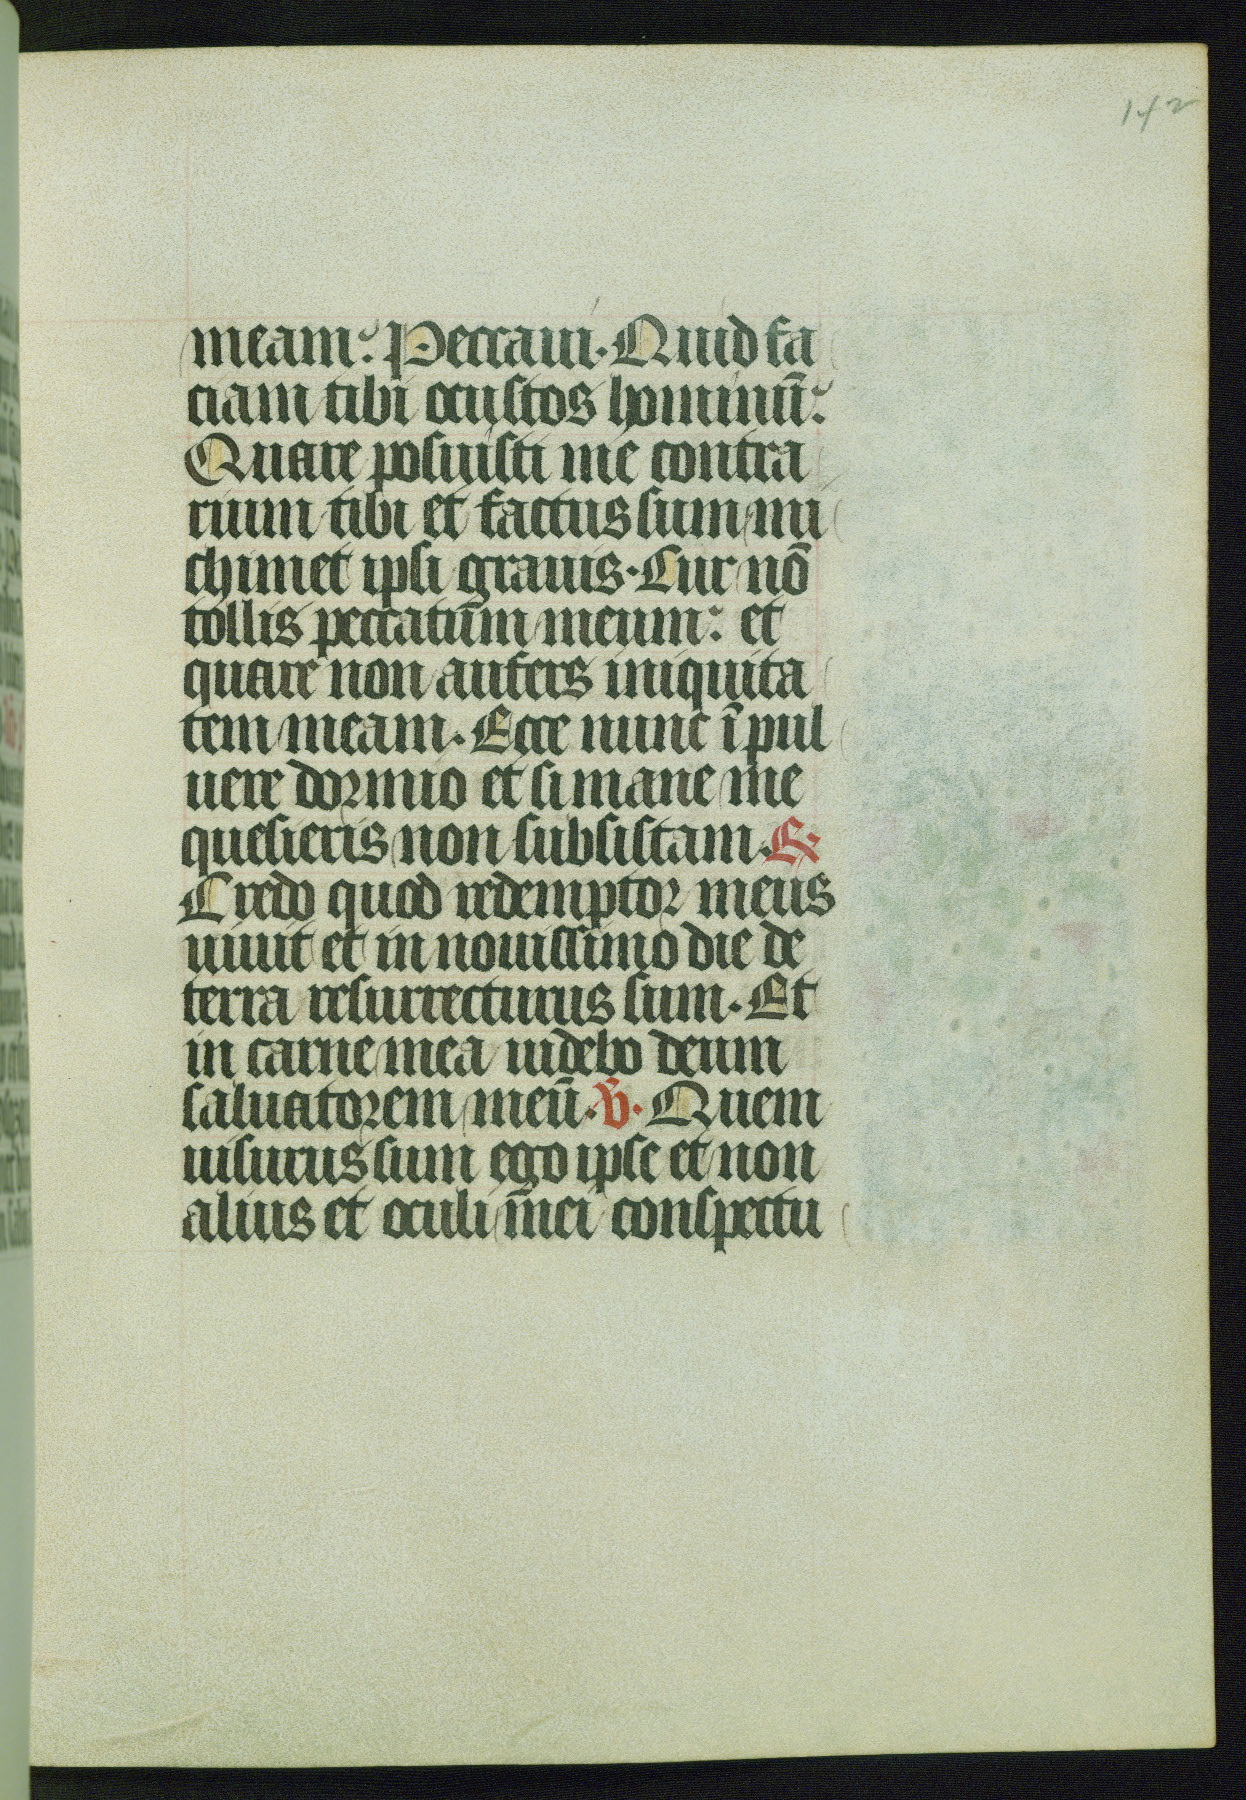 142
meam? Peccaui. Quid fa
ciam tibi o custos hominū?
Quare posuisti me contra
rium tibi et factus sum mi
chimet ipsi grauis. Cur nō
tollis peccatum meum: et
quare non aufers iniquita
tem meam. Ecce nunc ī pul
uere dormio et si mane me
quesieris non subsistam. ℟.
Credo quod redemptor meus
uiuit et in nouissimo die de
terra resurrecturus sum. Et
in carne mea uidebo deum
saluatorem meū. ℣. Quem
uisurus sum ego ipse et non
alius et oculi mei conspectu